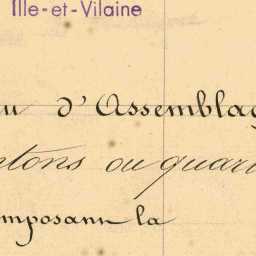 Ille-et-Vilaine
au d'Assemblag
ntons ou quar
mposant la